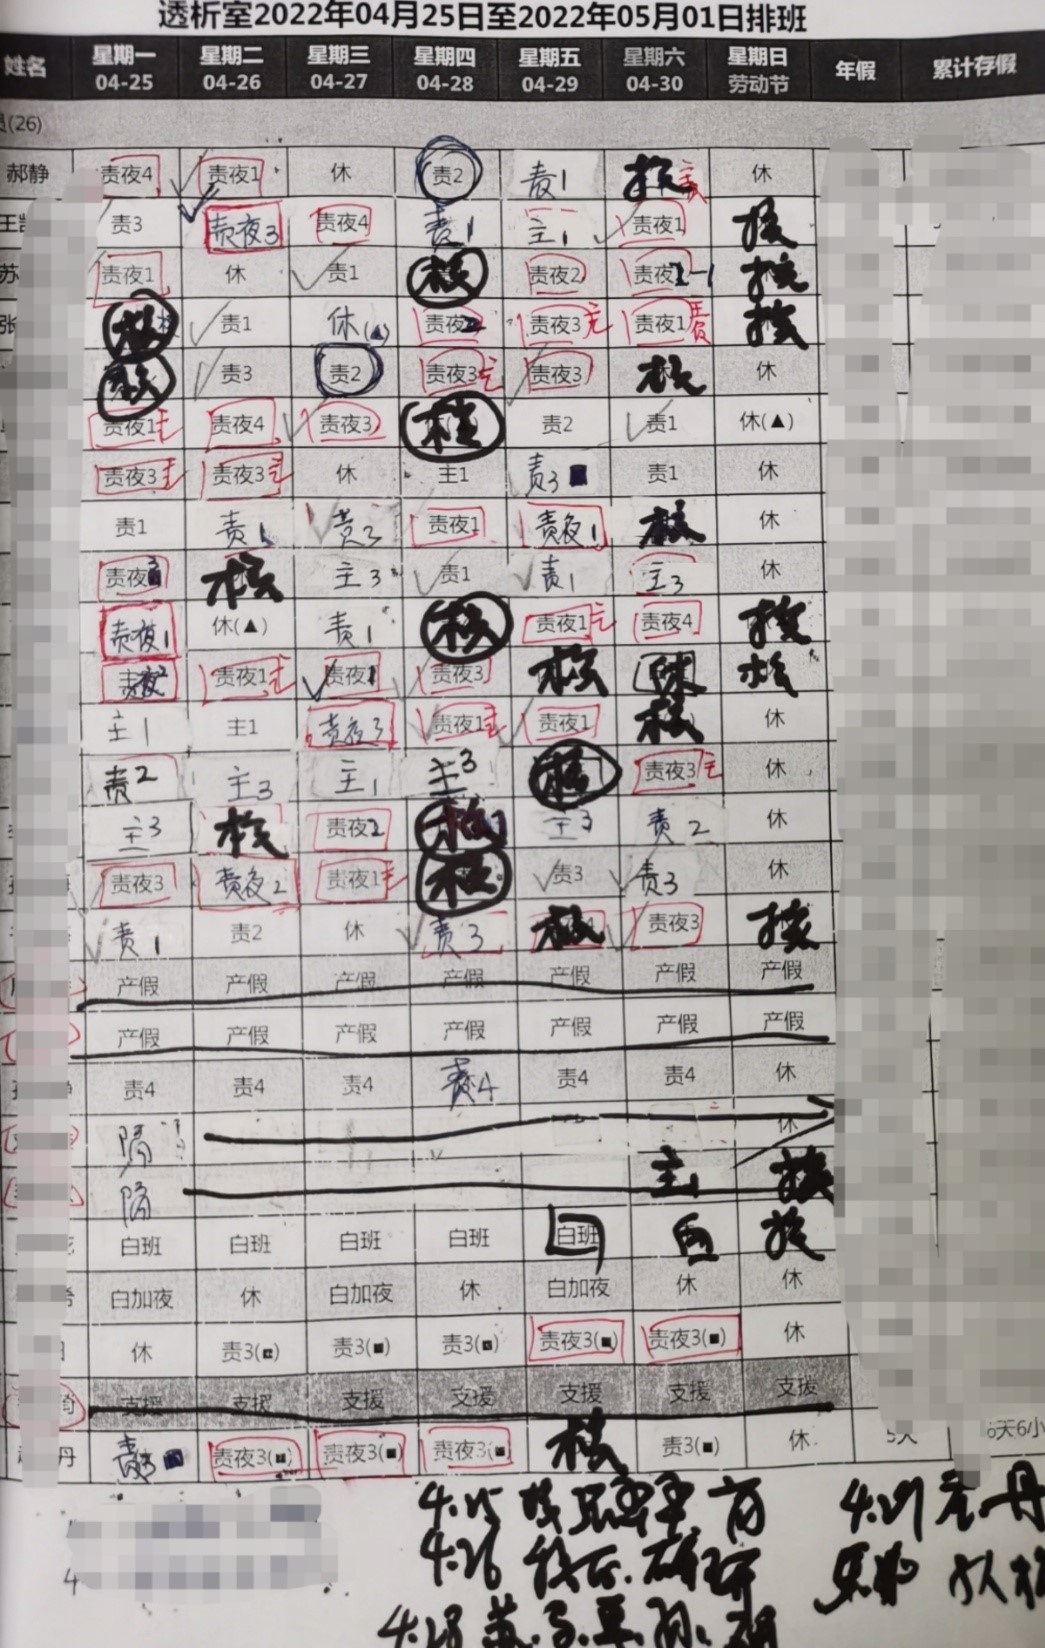 透析室2022年04月25日至2022年05月01日排班
姓名 星期一 星期二 星期三 星期四 星期五 星期六 星期日 年假 累计存假
04-25 04-26 04-27 04-28 04-29 04-30 劳动节
员(26)
郝静 责夜4 责夜1 休 责2 责1 核 休
王 责3 责夜3 责夜4 责1 主1 责夜1 核
苏 责夜1 休 责1 核 责夜2 核
张 核 责1 休(▲) 责夜2 责夜3 责夜1 核
核 责3 责2 责夜3 责夜3 核 休
责夜1 责夜4 责夜3 核 责2 责1 休(▲)
责夜3 责夜3 休 主1 责3■ 责1 休
责1 责1 责3 责夜1 责夜1 核 休
责夜3 核 主3 责1 责1 主3 休
责夜1 休(▲) 责1 核 责夜1 责夜4 核
责夜2 责夜1 责夜1 责夜3 核 休 核
主1 主1 责夜3 责夜1 责夜1 核 休
责2 主3 主1 主3 核 责夜3 休
主3 核 责夜2 核 主3 责2 休
责夜3 责夜2 责夜1 核 责3 责3 休
责1 责2 休 责3 核 责夜3 核
产假 产假 产假 产假 产假 产假 产假
产假 产假 产假 产假 产假 产假 产假
责4 责4 责4 责4 责4 责4 休
隔 休
隔 主1 核
白班 白班 白班 白班 白班 白 核
白加夜 休 白加夜 休 白加夜 休 休
休 责3(■) 责3(■) 责3(■) 责夜3(■) 责夜3(■) 休
支援 支援 支援 支援 支援 支援 支援
丹 责3■ 责夜3(■) 责夜3(■) 责夜3(■) 核 责3(■) 休 5天 6天6小
4.25 4.29 丹
4.26
4.28 苏